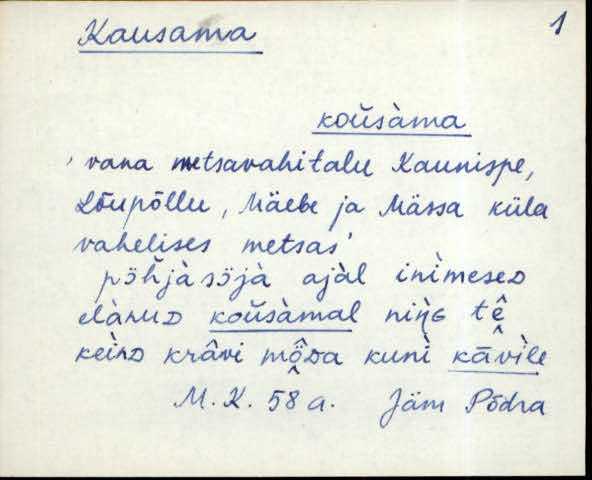 Kausama 1
koŭsàma
'vana metsavahitalu Kaunispe,
Lõupõllu, Mäebe ja Mässa küla
vahelises metsas'
pöh̆jàsöjà ajàl inìmeseD
elànuD koŭsàmal niŋ̀G tê̬
keìnD krâvi mö̭̂Da kunì kāvìle
M. K. 58 a. Jäm Põdra